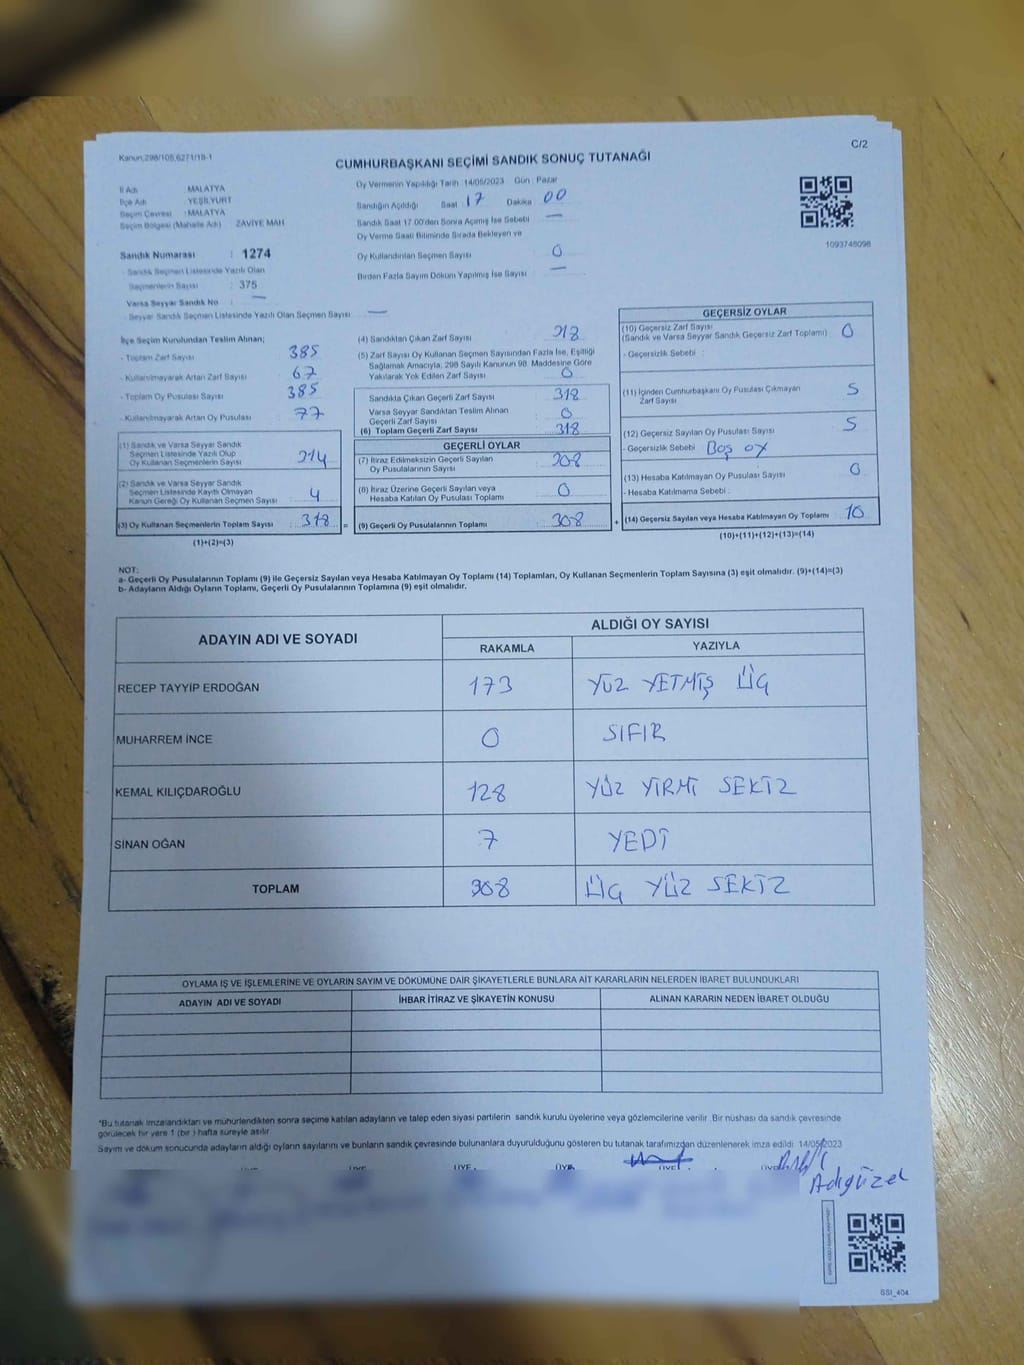 Kanun:298/105,6271/18-1
C/2
CUMHURBAŞKANI SEÇİMİ SANDIK SONUÇ TUTANAĞI
İl Adı : MALATYA
İlçe Adı : YEŞİLYURT
Seçim Çevresi : MALATYA
Seçim Bölgesi (Mahalle Adı) ZAVİYE MAH
Sandık Numarası : 1274
- Sandık Seçmen Listesinde Yazılı Olan
Seçmenlerin Sayısı : 375
Varsa Seyyar Sandık No : —
- Seyyar Sandık Seçmen Listesinde Yazılı Olan Seçmen Sayısı : —
Oy Vermenin Yapıldığı Tarih :14/05/2023 Gün : Pazar
Sandığın Açıldığı Saat : 17 Dakika : 00
Sandık Saat 17.00'den Sonra Açılmış İse Sebebi : —
Oy Verme Saati Bitiminde Sırada Bekleyen ve
Oy Kullandırılan Seçmen Sayısı : 0
Birden Fazla Sayım Döküm Yapılmış İse Sayısı : —
1093748098
İlçe Seçim Kurulundan Teslim Alınan;
- Toplam Zarf Sayısı : 385
- Kullanılmayarak Artan Zarf Sayısı : 67
- Toplam Oy Pusulası Sayısı : 385
- Kullanılmayarak Artan Oy Pusulası : 77
(1) Sandık ve Varsa Seyyar Sandık
Seçmen Listesinde Yazılı Olup
Oy Kullanan Seçmenlerin Sayısı : 314
(2) Sandık ve Varsa Seyyar Sandık
Seçmen Listesinde Kayıtlı Olmayan
Kanun Gereği Oy Kullanan Seçmen Sayısı : 4
(3) Oy Kullanan Seçmenlerin Toplam Sayısı : 318 =
(1)+(2)=(3)
(4) Sandıktan Çıkan Zarf Sayısı : 318
(5) Zarf Sayısı Oy Kullanan Seçmen Sayısından Fazla İse, Eşitliği
Sağlamak Amacıyla; 298 Sayılı Kanunun 98. Maddesine Göre
Yakılarak Yok Edilen Zarf Sayısı : 0
Sandıkta Çıkan Geçerli Zarf Sayısı : 318
Varsa Seyyar Sandıktan Teslim Alınan
Geçerli Zarf Sayısı : 0
(6) Toplam Geçerli Zarf Sayısı : 318
GEÇERLİ OYLAR
(7) İtiraz Edilmeksizin Geçerli Sayılan
Oy Pusulalarının Sayısı : 308
(8) İtiraz Üzerine Geçerli Sayılan veya
Hesaba Katılan Oy Pusulası Toplamı : 0
(9) Geçerli Oy Pusulalarının Toplamı : 308 +
GEÇERSİZ OYLAR
(10) Geçersiz Zarf Sayısı
(Sandık ve Varsa Seyyar Sandık Geçersiz Zarf Toplamı) : 0
- Geçersizlik Sebebi :
(11) İçinden Cumhurbaşkanı Oy Pusulası Çıkmayan
Zarf Sayısı : 5
(12) Geçersiz Sayılan Oy Pusulası Sayısı : 5
- Geçersizlik Sebebi : Boş oy
(13) Hesaba Katılmayan Oy Pusulası Sayısı : 0
- Hesaba Katılmama Sebebi :
(14) Geçersiz Sayılan veya Hesaba Katılmayan Oy Toplamı : 10
(10)+(11)+(12)+(13)=(14)
NOT:
a- Geçerli Oy Pusulalarının Toplamı (9) ile Geçersiz Sayılan veya Hesaba Katılmayan Oy Toplamı (14) Toplamları, Oy Kullanan Seçmenlerin Toplam Sayısına (3) eşit olmalıdır. (9)+(14)=(3)
b- Adayların Aldığı Oyların Toplamı, Geçerli Oy Pusulalarının Toplamına (9) eşit olmalıdır.
ADAYIN ADI VE SOYADI
ALDIĞI OY SAYISI
RAKAMLA YAZIYLA
RECEP TAYYİP ERDOĞAN 173 YÜZ YETMİŞ ÜÇ
MUHARREM İNCE 0 SIFIR
KEMAL KILIÇDAROĞLU 128 YÜZ YİRMİ SEKİZ
SİNAN OĞAN 7 YEDİ
TOPLAM 308 ÜÇ YÜZ SEKİZ
OYLAMA İŞ VE İŞLEMLERİNE VE OYLARIN SAYIM VE DÖKÜMÜNE DAİR ŞİKAYETLERLE BUNLARA AİT KARARLARIN NELERDEN İBARET BULUNDUKLARI
ADAYIN ADI VE SOYADI İHBAR İTİRAZ VE ŞİKAYETİN KONUSU ALINAN KARARIN NEDEN İBARET OLDUĞU
*Bu tutanak imzalandıktan ve mühürlendikten sonra seçime katılan adayların ve talep eden siyasi partilerin sandık kurulu üyelerine veya gözlemcilerine verilir. Bir nüshası da sandık çevresinde
görülecek bir yere 1 (bir ) hafta süreyle asılır.
Sayım ve döküm sonucunda adayların aldığı oyların sayılarını ve bunların sandık çevresinde bulunanlara duyurulduğunu gösteren bu tutanak tarafımızdan düzenlenerek imza edildi. 14/05/2023
ÜYE ÜYE ÜYE ÜYE ÜYE ÜYE
Adıgüzel
SSI_404